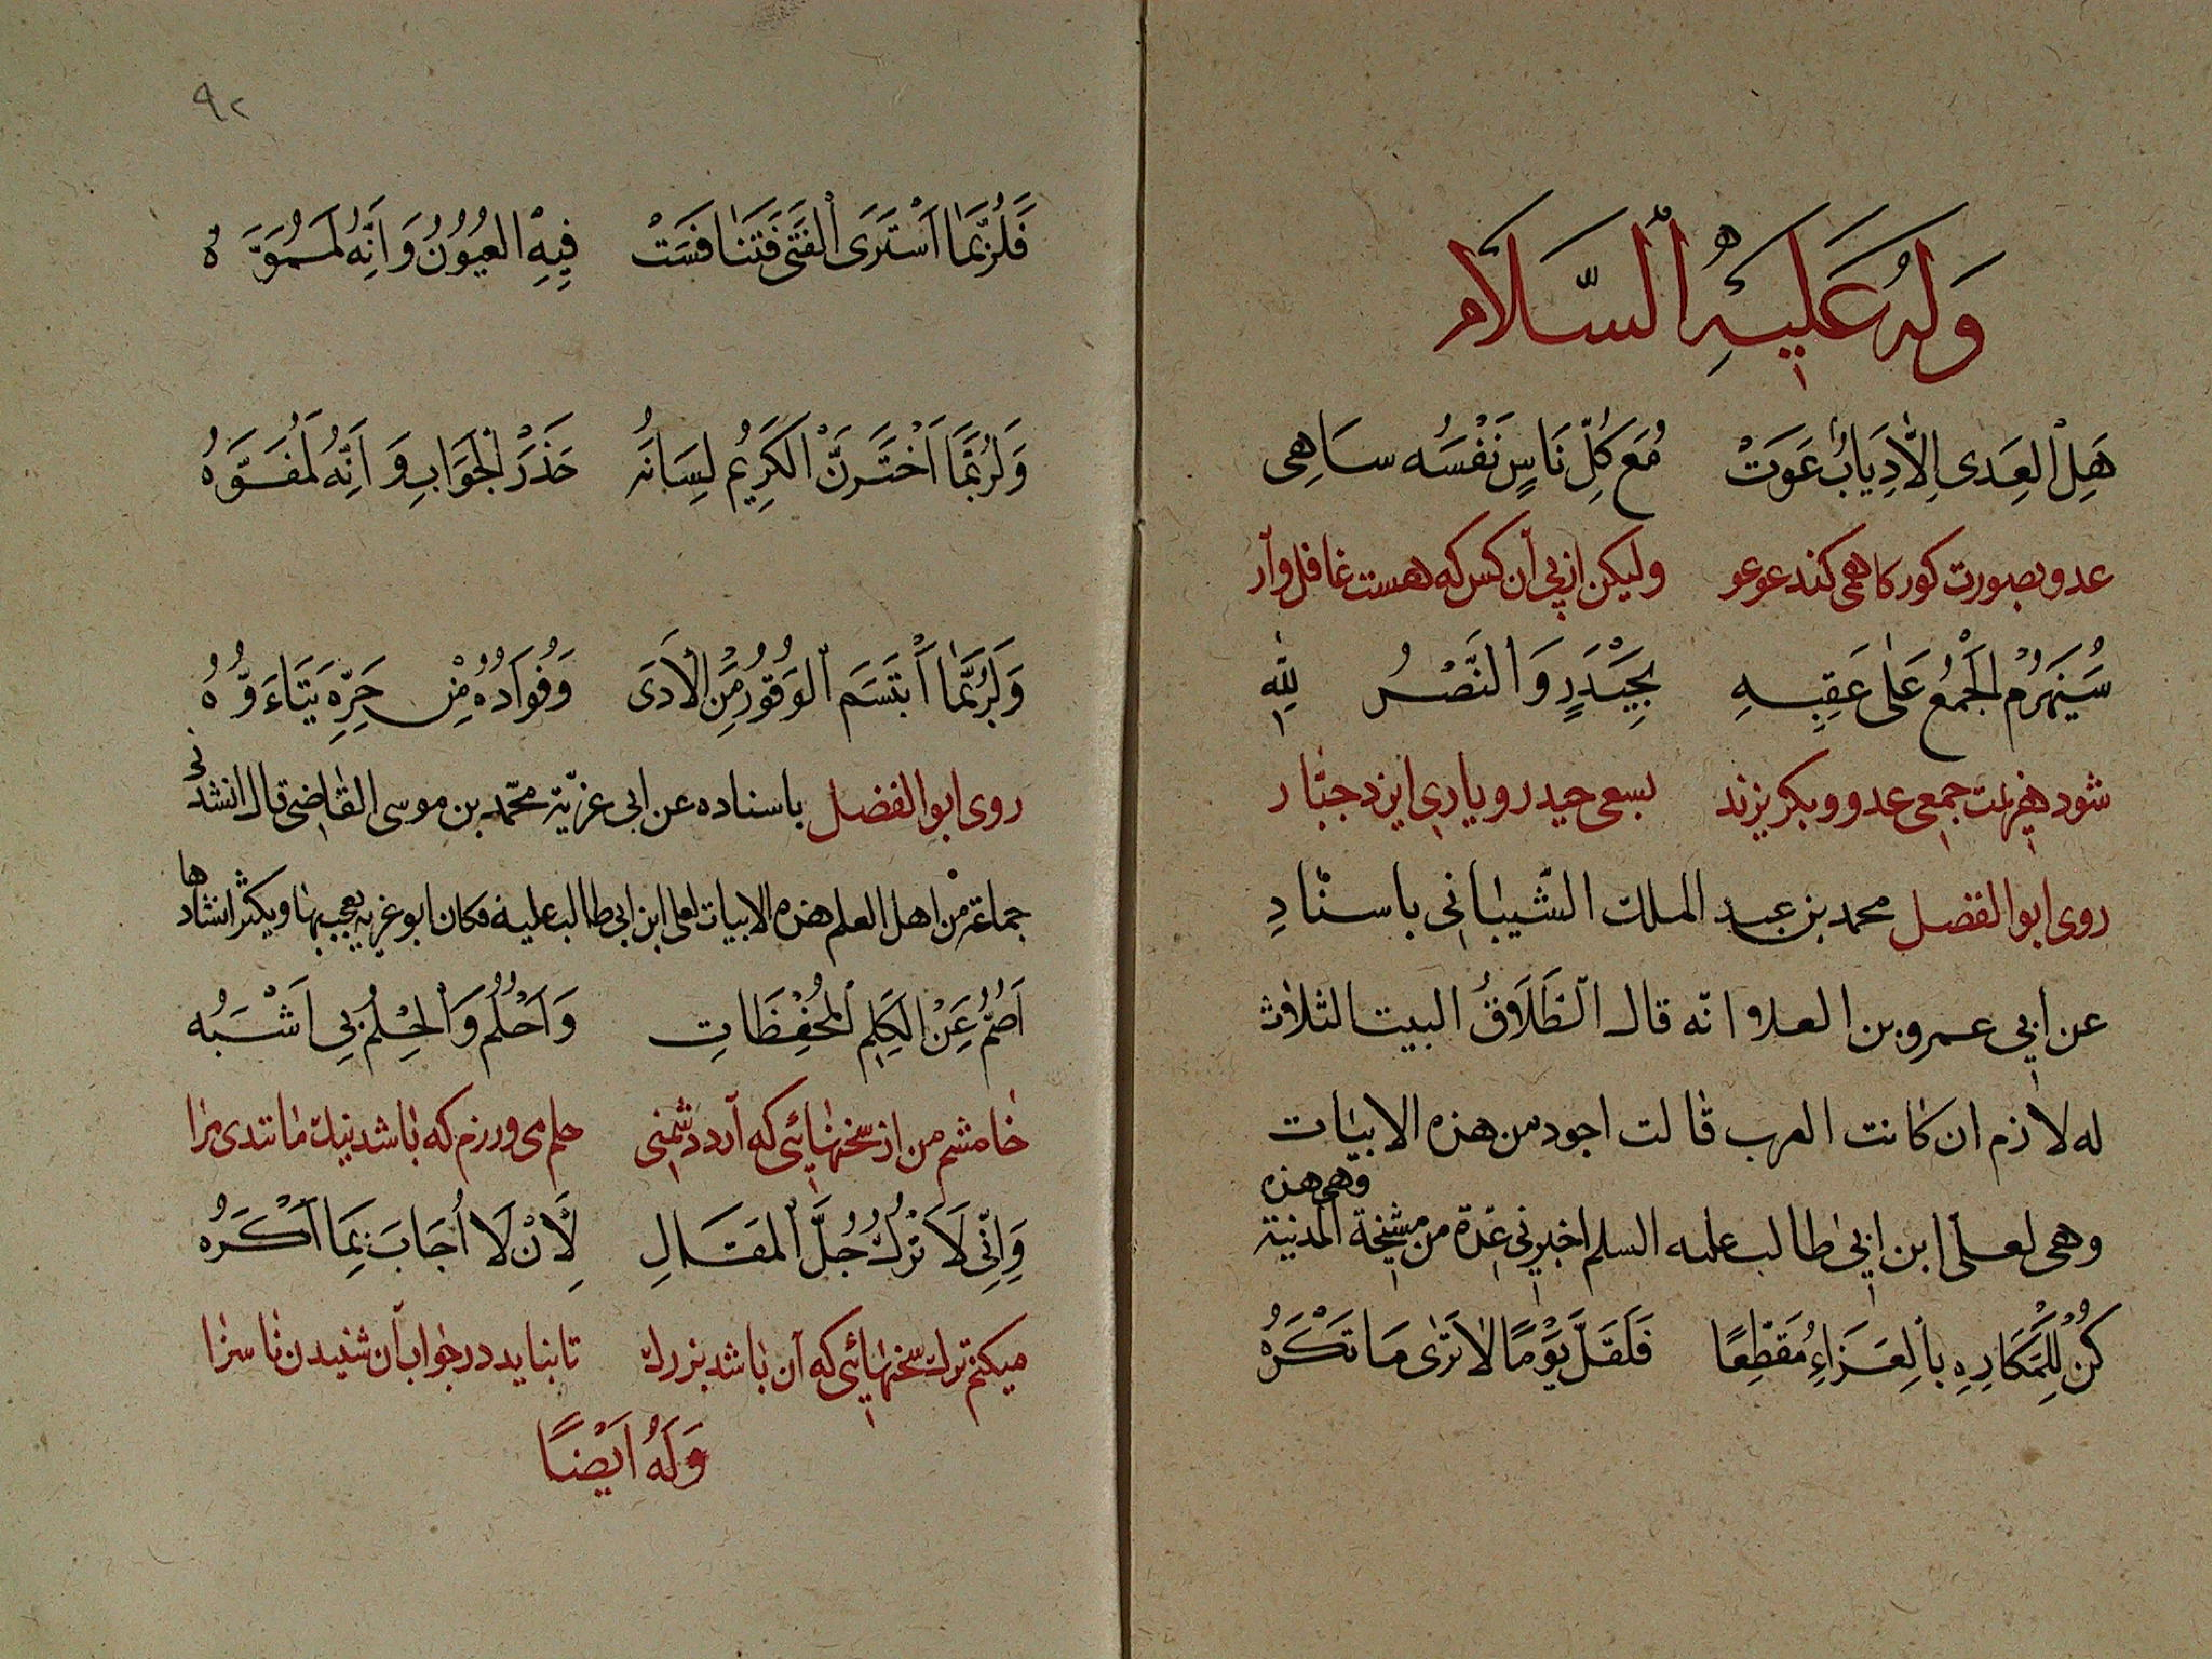 وَلَهُ عَلَيْهِ السَّلَام
هَلِ الْعِدَى اِلَّا ذِيَابٌ عَوَتْ مَعَ كُلِّ نَاسٍ نَفْسَه سَاهِى
عدو بصورت كور كاهمى كند عوعو وليكن از پى آن كس كه هست غافل وآر
سَيُهْزَمُ الْجَمْعُ عَلٰى عَقِبِهِ بِحَيْدَرٍ وَالنَّصْرُ لِلّٰهِ
شود هزيمت جمعى عدو و بكريزند بسعى حيدر و يارى ايزد جبّار
روى ابو الفضل محمد بن عبد الملك الشيبانى باسناد
عن ابى عمرو بن العلاو انّه قال الطَّلَاقُ البيت الثلاث
له لازم ان كانت العرب قالت اجود من هذه الابيات
وهى لعلى ابن ابى طالب عليه السلم اخبرنى عدّة من مشيخة المدنية وهى هذه
كُنْ لِلْمَكَارِهِ بِالْعَزَاءِ مُقَطِّعًا فَلَقَلَّ يَوْمًا لَا تَرٰى مَا تَكْرَهُ
٩٢
فَلَرُبَّمَا اَسْتَرَى الْفَتَى فَتَنَافَسَتْ فِيهِ الْعُيُونُ وَاَنَّهُ لَمُمَوَّهُ
وَلَرُبَّمَا اَخْتَزَنَ الْكَرِيمُ لِسَانَهُ حَذَرَ الْجَوَابِ وَاَنَّهُ لَمُفَوَّهُ
وَلَرُبَّمَا اَبْتَسَمَ الْوَقُورُ مِنَ الْاَذَى وَفُوَادُهُ مِنْ حَرِّهِ يَتَاءَوَّهُ
روى ابو الفضل باسناده عن ابى عزيّة محمّد بن موسى القاضى قال انشدنى
جماعة من اهل العلم هذه الابيات لعلى ابن ابى طالب عليه فكان ابو غزيه يعجب بها ويكثر انشادها
اَصَمُّ عَنِ الْكَلِمِ الْمُحْفِظَاتِ وَاَحْلُمُ وَالْحِلْمُ بِى اَشْبَهُ
خامشم من از سخنهائى كه آرد دشمنى حلم مى ورزم كه باشد نيك مانندى مرا
وَاِنِّى لَاَتْرُكُ جُلَّ الْمَقَالِ لِاَنْ لَا اُجَابَ بِمَا اَكْرَهُ
ميكنم ترك سخنهائى كه آن باشد بزرك تا نبايد در جواب آن شنيدن ناسزا
وَلَهُ اَيْضًا